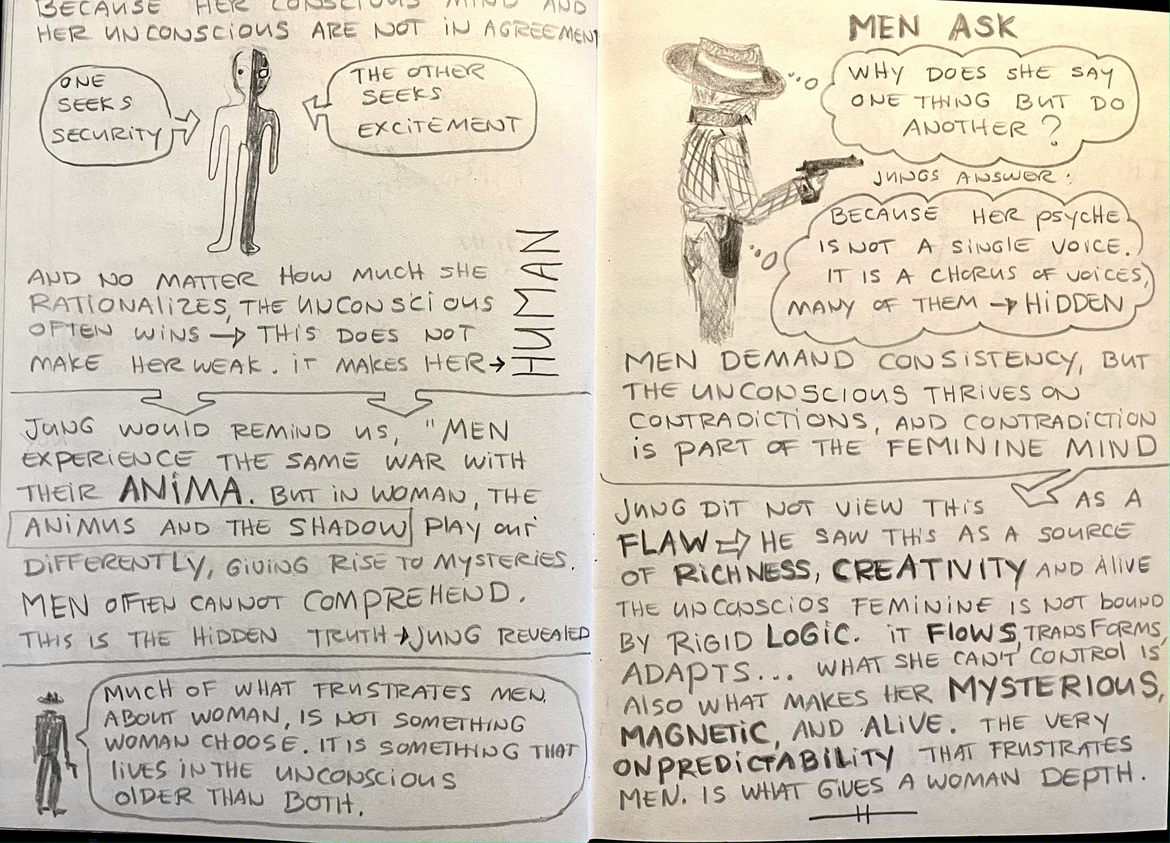 BECAUSE HER CONSCIOUS MIND AND
HER UNCONSCIOUS ARE NOT IN AGREEMENT
ONE
SEEKS
SECURITY
THE OTHER
SEEKS
EXCITEMENT
AND NO MATTER HOW MUCH SHE
RATIONALIZES, THE UNCONSCIOUS
OFTEN WINS → THIS DOES NOT
MAKE HER WEAK. IT MAKES HER →
HUMAN
JUNG WOULD REMIND US, "MEN
EXPERIENCE THE SAME WAR WITH
THEIR ANIMA. BUT IN WOMAN, THE
ANIMUS AND THE SHADOW PLAY OUT
DIFFERENTLY, GIVING RISE TO MYSTERIES.
MEN OFTEN CANNOT COMPREHEND.
THIS IS THE HIDDEN TRUTH → JUNG REVEALED
MUCH OF WHAT FRUSTRATES MEN.
ABOUT WOMAN, IS NOT SOMETHING
WOMAN CHOOSE. IT IS SOMETHING THAT
LIVES IN THE UNCONSCIOUS
OLDER THAN BOTH.
MEN ASK
WHY DOES SHE SAY
ONE THING BUT DO
ANOTHER?
JUNGS ANSWER:
BECAUSE HER PSYCHE
IS NOT A SINGLE VOICE.
IT IS A CHORUS OF VOICES,
MANY OF THEM → HIDDEN
MEN DEMAND CONSISTENCY, BUT
THE UNCONSCIOUS THRIVES ON
CONTRADICTIONS, AND CONTRADICTION
IS PART OF THE FEMININE MIND
JUNG DIT NOT VIEW THIS AS A
FLAW ⇒ HE SAW THIS AS A SOURCE
OF RICHNESS, CREATIVITY AND ALIVE
THE UNCONSCIOS FEMININE IS NOT BOUND
BY RIGID LOGIC. IT FLOWS, TRANSFORMS,
ADAPTS... WHAT SHE CAN'T CONTROL IS
ALSO WHAT MAKES HER MYSTERIOUS,
MAGNETIC, AND ALIVE. THE VERY
ONPREDICTABILITY THAT FRUSTRATES
MEN. IS WHAT GIVES A WOMAN DEPTH.